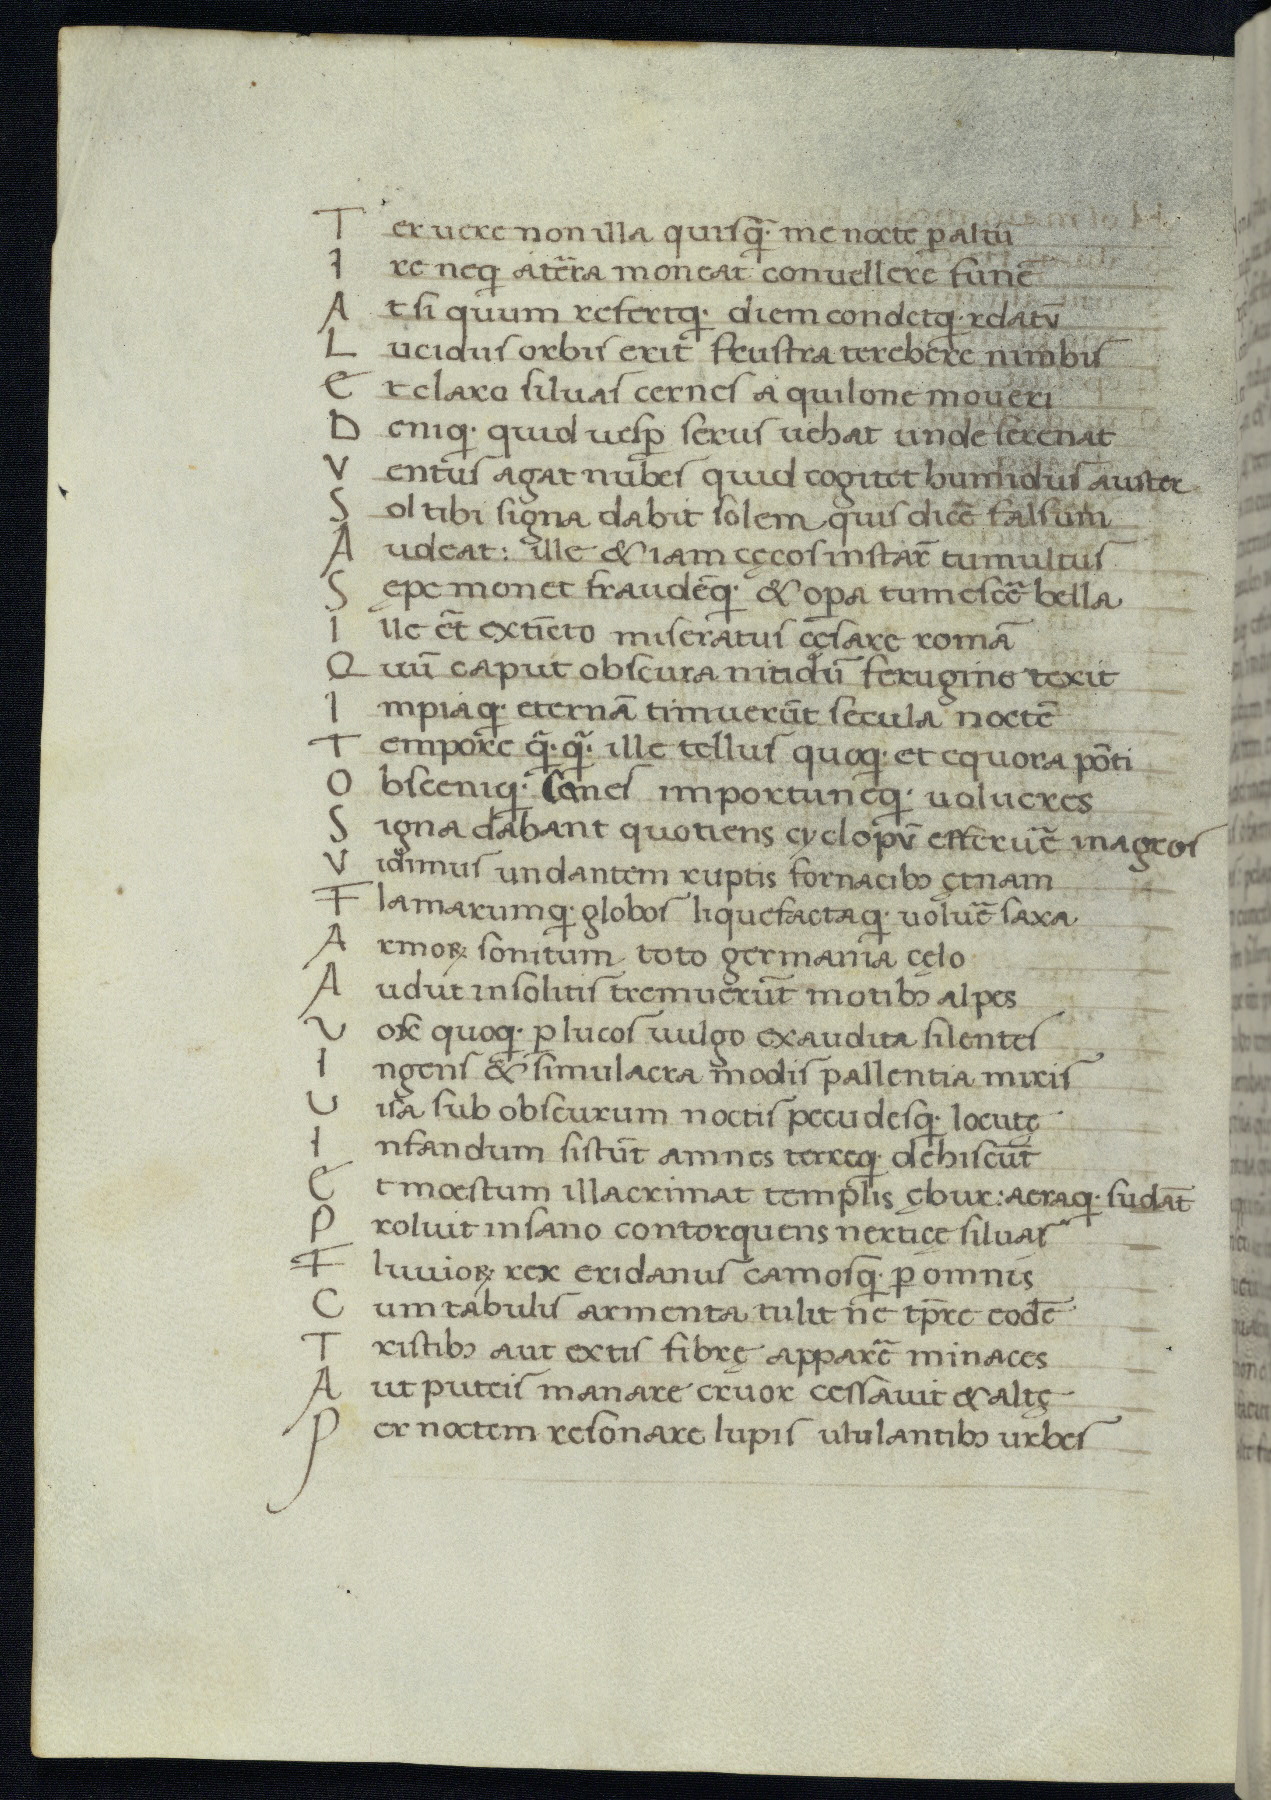 Ter uere non illa quisq̃· me nocte ꝑ altũ
Ire neq; a tẽra moneat conuellere funẽ
At si quum referetq;· diem condetq;· relatũ
Lucidus orbis erit frustra terebere nimbis
Et claro siluas cernes aquilone moueri
Deniq;· quid uesꝑ serus uehat unde serenat
Ventus agat nubes quid cogitet humidus auster
Sol tibi signa dabit solem quis dicẽ falsum
Audeat: ille & iam cęcos instar̃ tumultus
Sępe monet fraudẽq;· & oꝑa tumescẽ bella
Ille ẽt extĩcto miseratus cęsare romã
Quũ caput obscura nitidũ ferugine texit
Impiaq;· eternã timuerũt secula noctẽ
Tempore q̃·q̃· ille tellus quoq;· et equora põti
Obsceniq;· canes importuneq;· uolucres
Signa dabant quotiens cyclopũ efferuẽ in agros
Vidimus undantem ruptis fornacibꝫ ętnam
Flamarumq;· globos liquefactaq;· uoluẽ saxa
Armoꝝ sonitum toto germania cęlo
Audiit insolitis tremuerũt motibꝫ alpes
Vox quoq;· ꝑ lucos uulgo exaudita silentes
Ingens & simulacra modis pallentia miris
Visa sub obscurum noctis pecudesq;· locutę
Infandum sistũt amnes terreq;· dehiscũt
Et moestum illacrimat templis ębur: aeraq;· sudãt
Proluit insano contorquens uertice siluas
Fluuioꝝ rex eridanus camosq̃· ꝑ omnis
Cum tabulis armenta tulit nec tp̃re eodẽ
Tristibꝫ aut extis fibrę apparẽ minaces
Aut puteis manare cruor cessauit & altę
Per noctem resonare lupis ululantibꝫ urbes